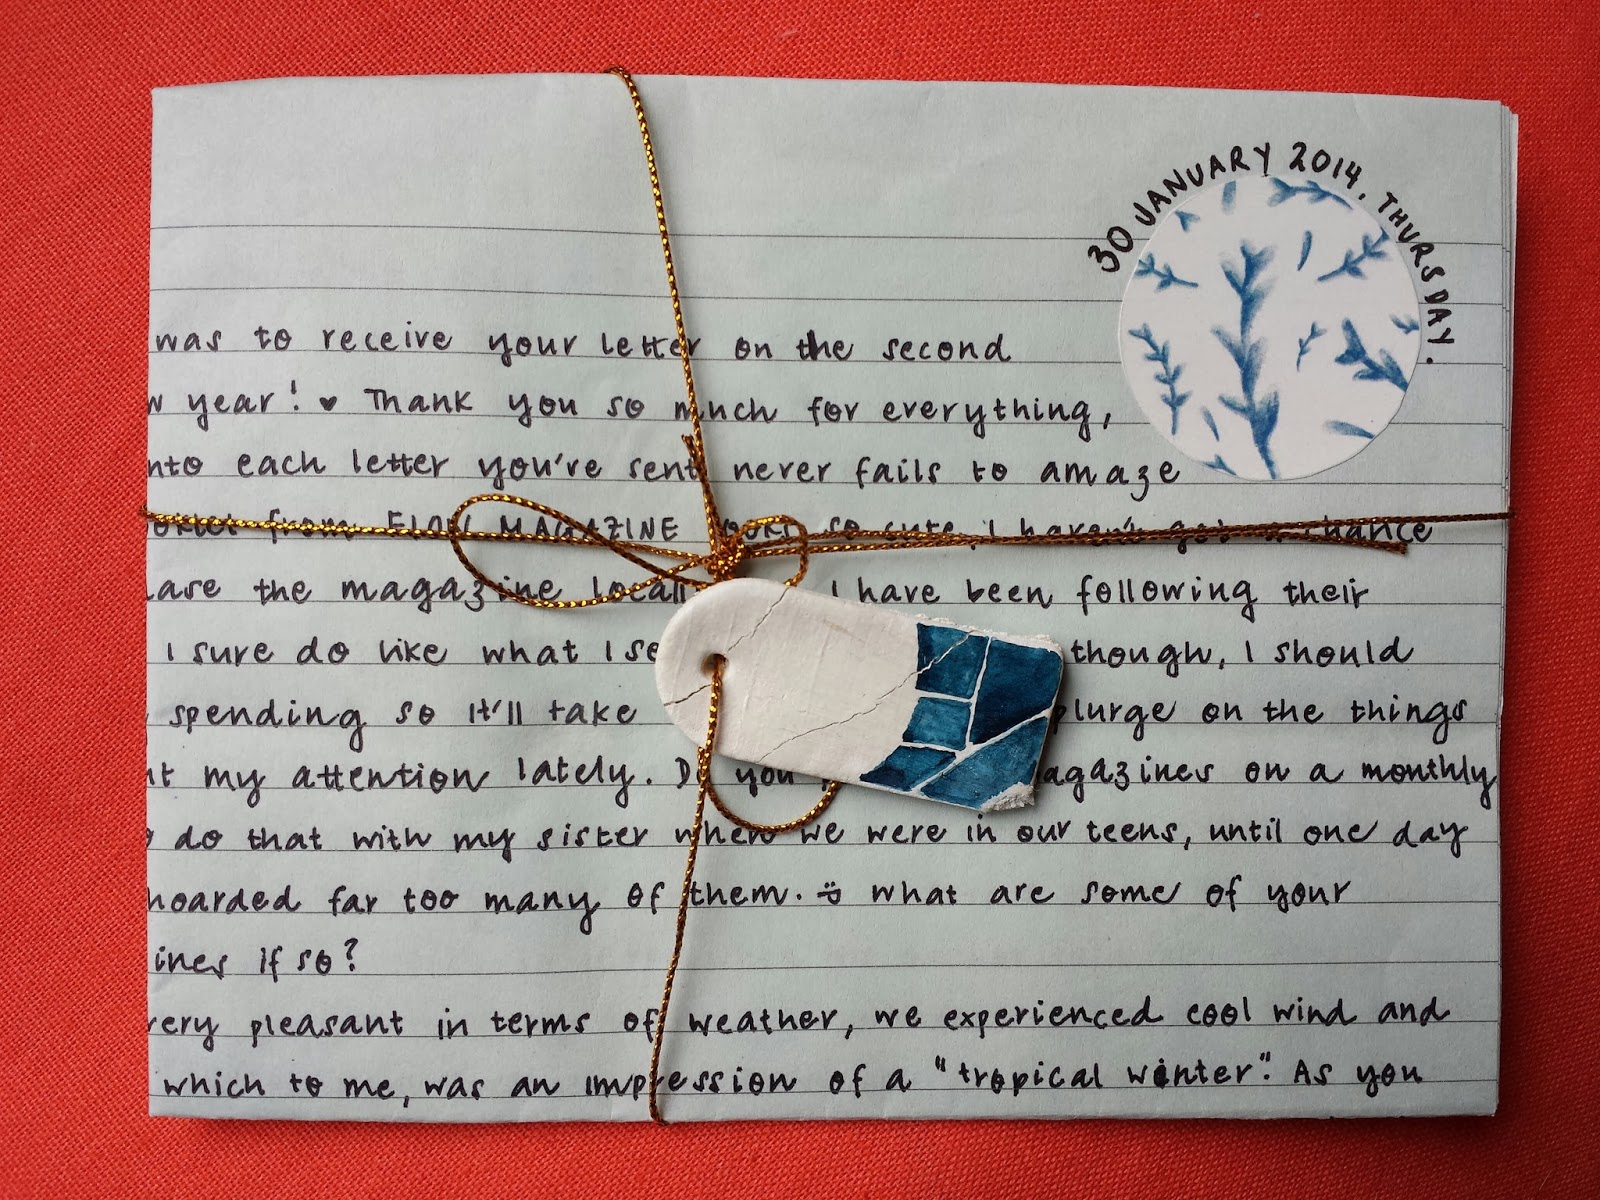 30 JANUARY 2014, THURSDAY.
was to receive your letter on the second
year! ♥ Thank you so much for everything,
each letter you've sent never fails to amaze
from FLOW MAGAZINE so cute, I haven't got a chance
the magazine I have been following their
I sure do like what I though, I should
spending so it'll take on the things
my attention lately. Do you on a monthly
do that with my sister when we were in our teens, until one day
hoarded far too many of them. what are some of your
if so?
very pleasant in terms of weather, we experienced cool wind and
which to me, was an impression of a "tropical winter". As you